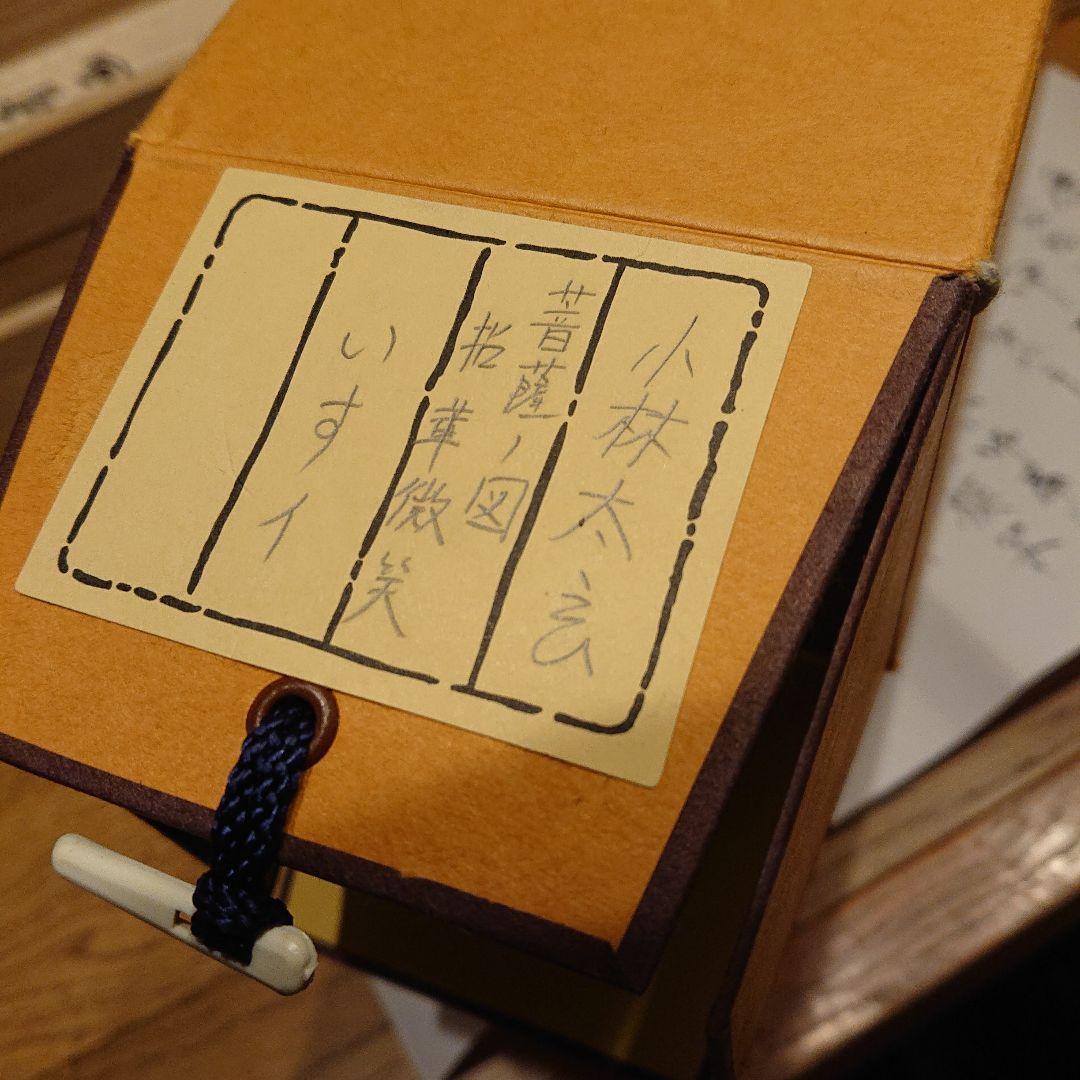 小林太玄
菩薩ノ図
拈華微笑
いすイ